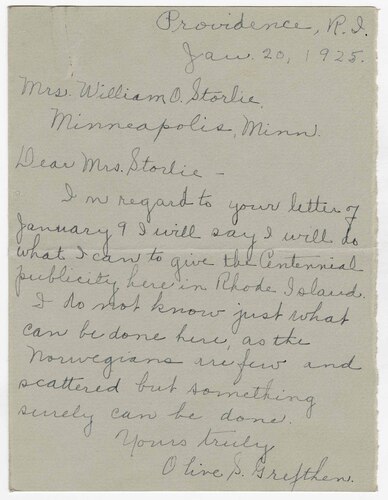 Providence, R.I.
Jan. 20, 1925.
Mrs. William O. Storlie,
Minneapolis, Minn.
Dear Mrs. Storlie —
In regard to your letter of
January 9 I will say I will do
what I can to give the Centennial
publicity here in Rhode Island.
I do not know just what
can be done here, as the
Norwegians are few and
scattered but something
surely can be done.
Yours truly
Olive S. Grefthen.